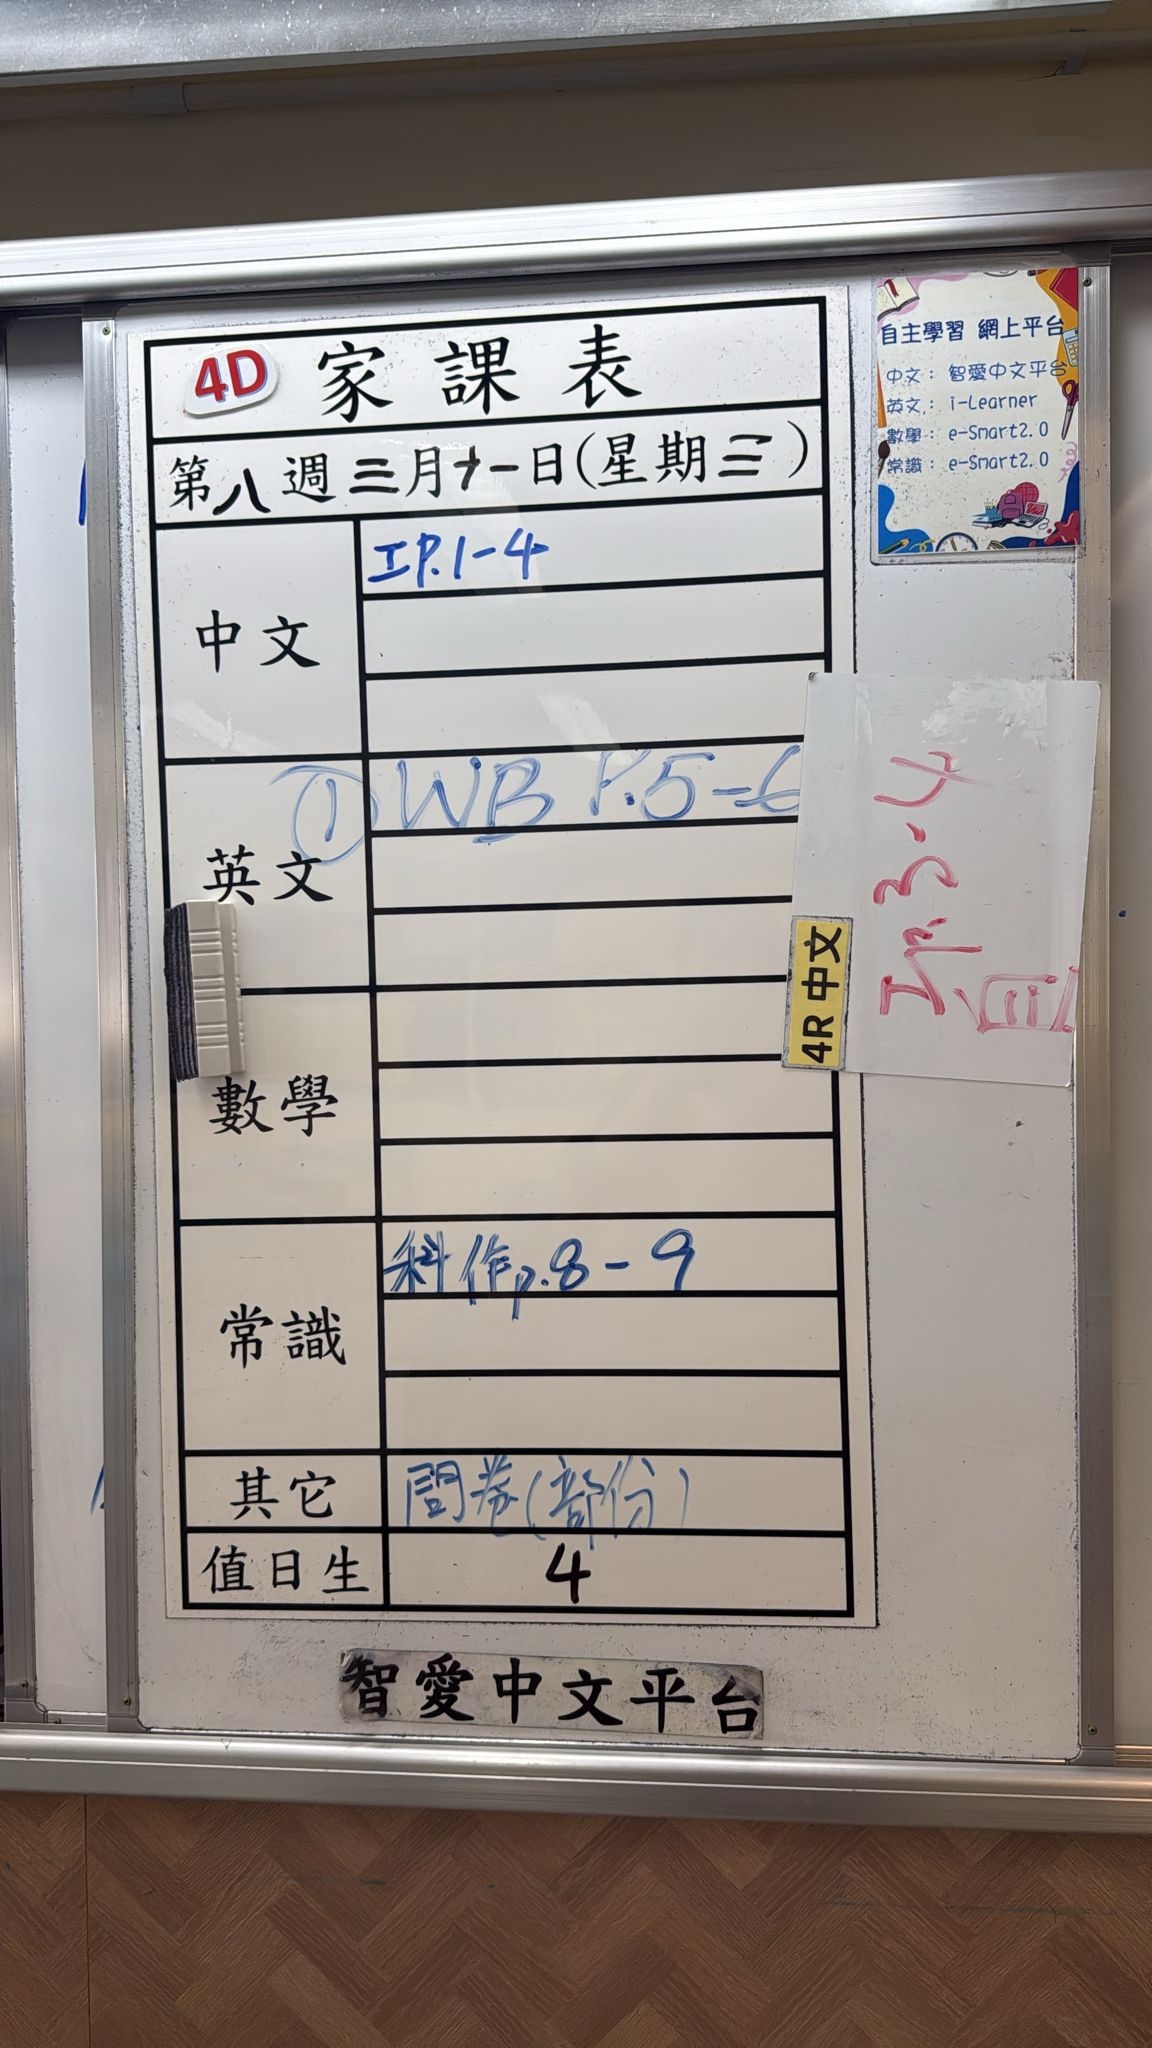 4D 家課表
第八週三月十一日(星期三)
中文
工P.1-4
英文
① WB P.5-6
數學
常識
科作p.8-9
其它
問卷(部份)
值日生
4
智愛中文平台
自主學習 網上平台
中文: 智愛中文平台
英文: i-Learner
數學: e-Smart2.0
常識: e-Smart2.0
4R 中文
工P.3-4